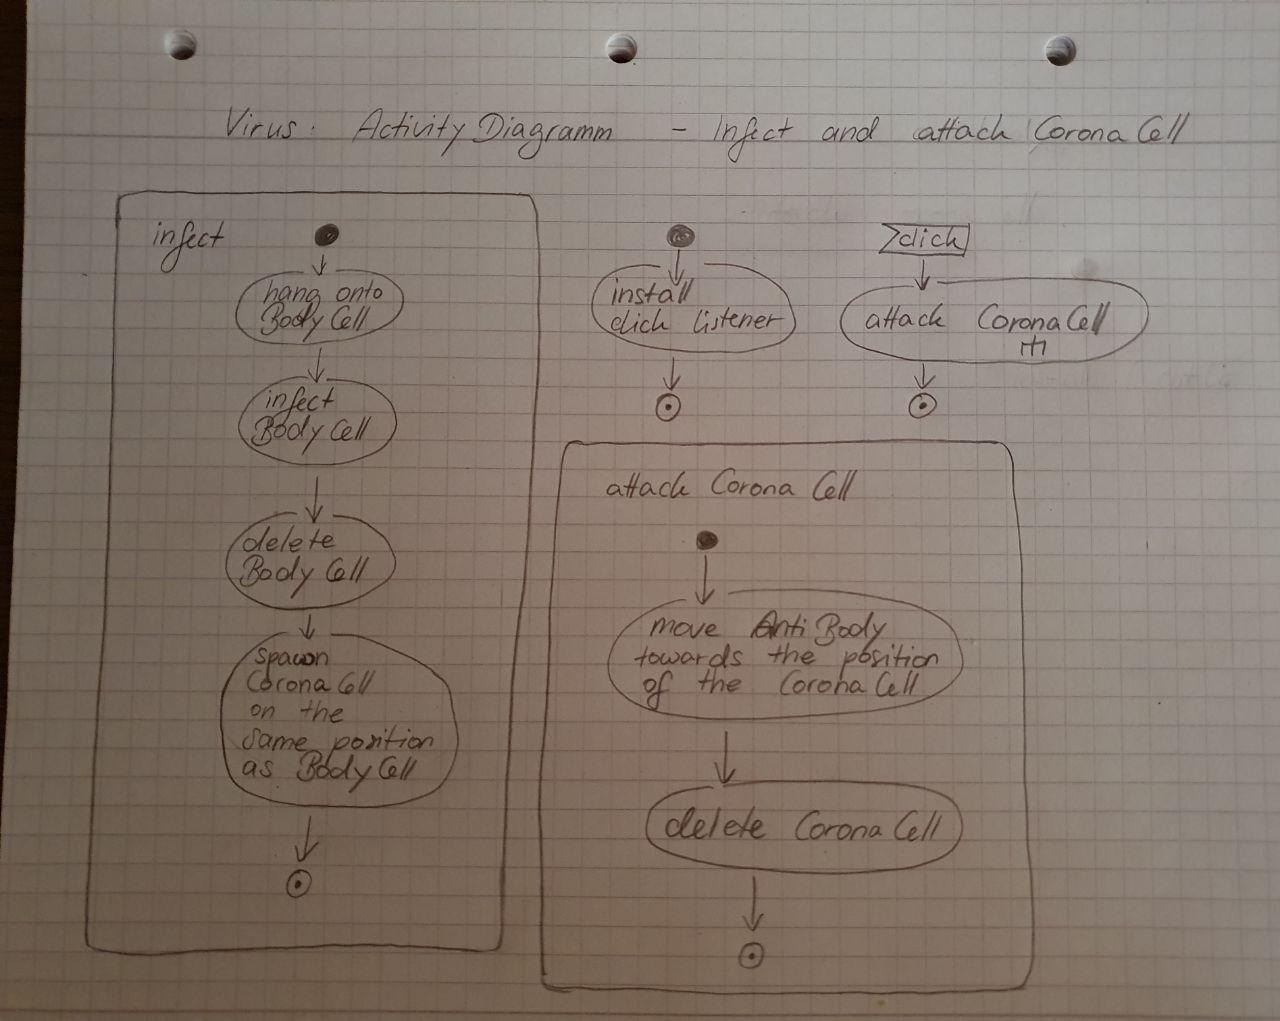 Virus: Activity Diagramm - Infect and attack Corona Cell
infect
hang onto
Body Cell
infect
Body Cell
delete
Body Cell
spawn
Corona Cell
on the
same position
as Body Cell
install
click listener
click
attack Corona Cell
attack Corona Cell
move AntiBody
towards the position
of the Corona Cell
delete Corona Cell